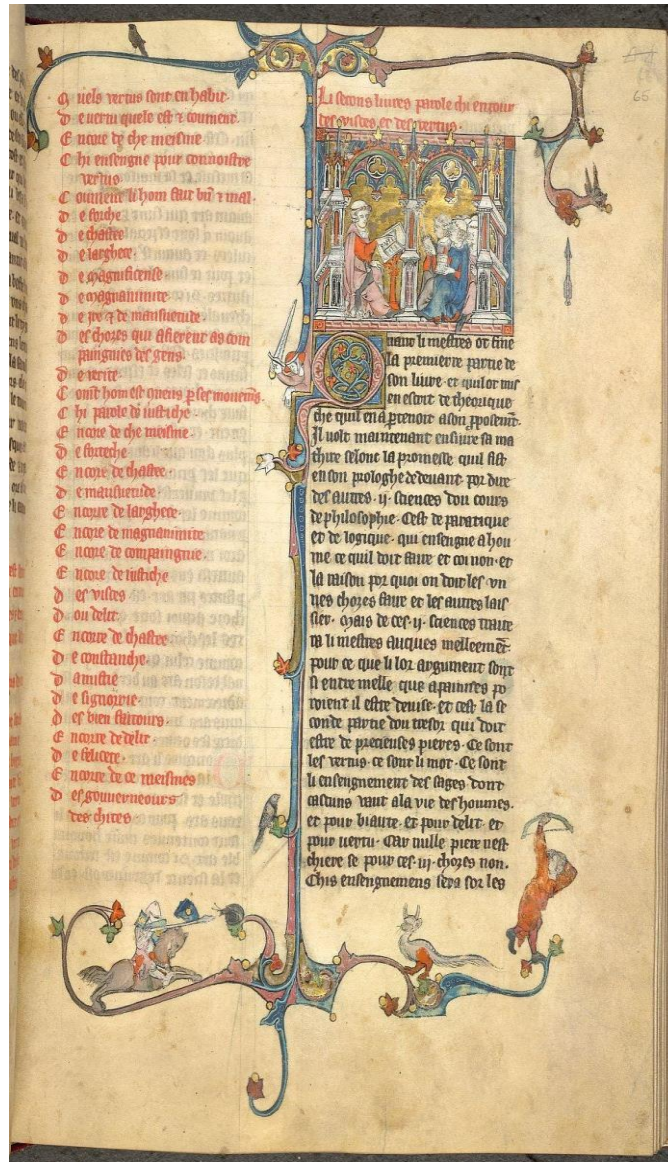 Q uels vertus sont en habit
D e vertu quele est ⁊ coument.
E ncore de che meisme
C hi enseigne pour connoistre
vertus
C oument li hom fait biñ ⁊ mal.
D e forche
D e chastee
D e larghece
D e magnificense
D e magnanimite
D e et de mansuetude
D es chozes qui afierent as com
paingnies des gens.
D e verite.
C hi parole di iustiche
E ncore de che meisme.
D e forteche
E ncore de chastee.
D e mansuetude
E ncore de larghece.
E ncore de magnanimite
E ncore de compaingnie.
E ncore de iustiche
D es visces
D ou delit.
E ncore de chastee.
D e constanche.
D amistie
D e signorie
D es bien faitours.
E ncore de delit.
D e felicite.
E ncore de ce meismes
D es gouverneours
des chites
65
Li secons livres parole chi enpour
des visces et des vertus.
Quant li mestres ot fine
la premiere partie de
son livre. et quil ot mis
en escrit de theorique
che quil en aprtenoit a son pposemt.
Il volt maintenant ensivre sa ma
thire selonc la promesse quil fist
en son prologhe de devant por dire
des autres .ij. sciences dou cours
de philosophie. Cest de pratique
et de logique. qui enseigne a hou
me ce quil doit faire et coi non. et
la raison por quoi on doit les vn
nes chozes faire et les autres lais
sier. Mais de ces .ij. sciences traite
ra li mestres auques melleemt
pour ce que li lor argument sont
si entre melle que a painnes po
roient il estre devise. et cest la se
conde partie dou tresor qui doit
estre de precieuses pieres. Ce sont
les vertus. ce sont li mot. Ce sont
li enseignement des sages dont
cascuns vaut a la vie des houmes.
et pour biaute. et pour delit. et
pour vertu. Car nulle piere nest
chiere se pour ces .iij. chozes non.
Chis enseignemens sera sor les